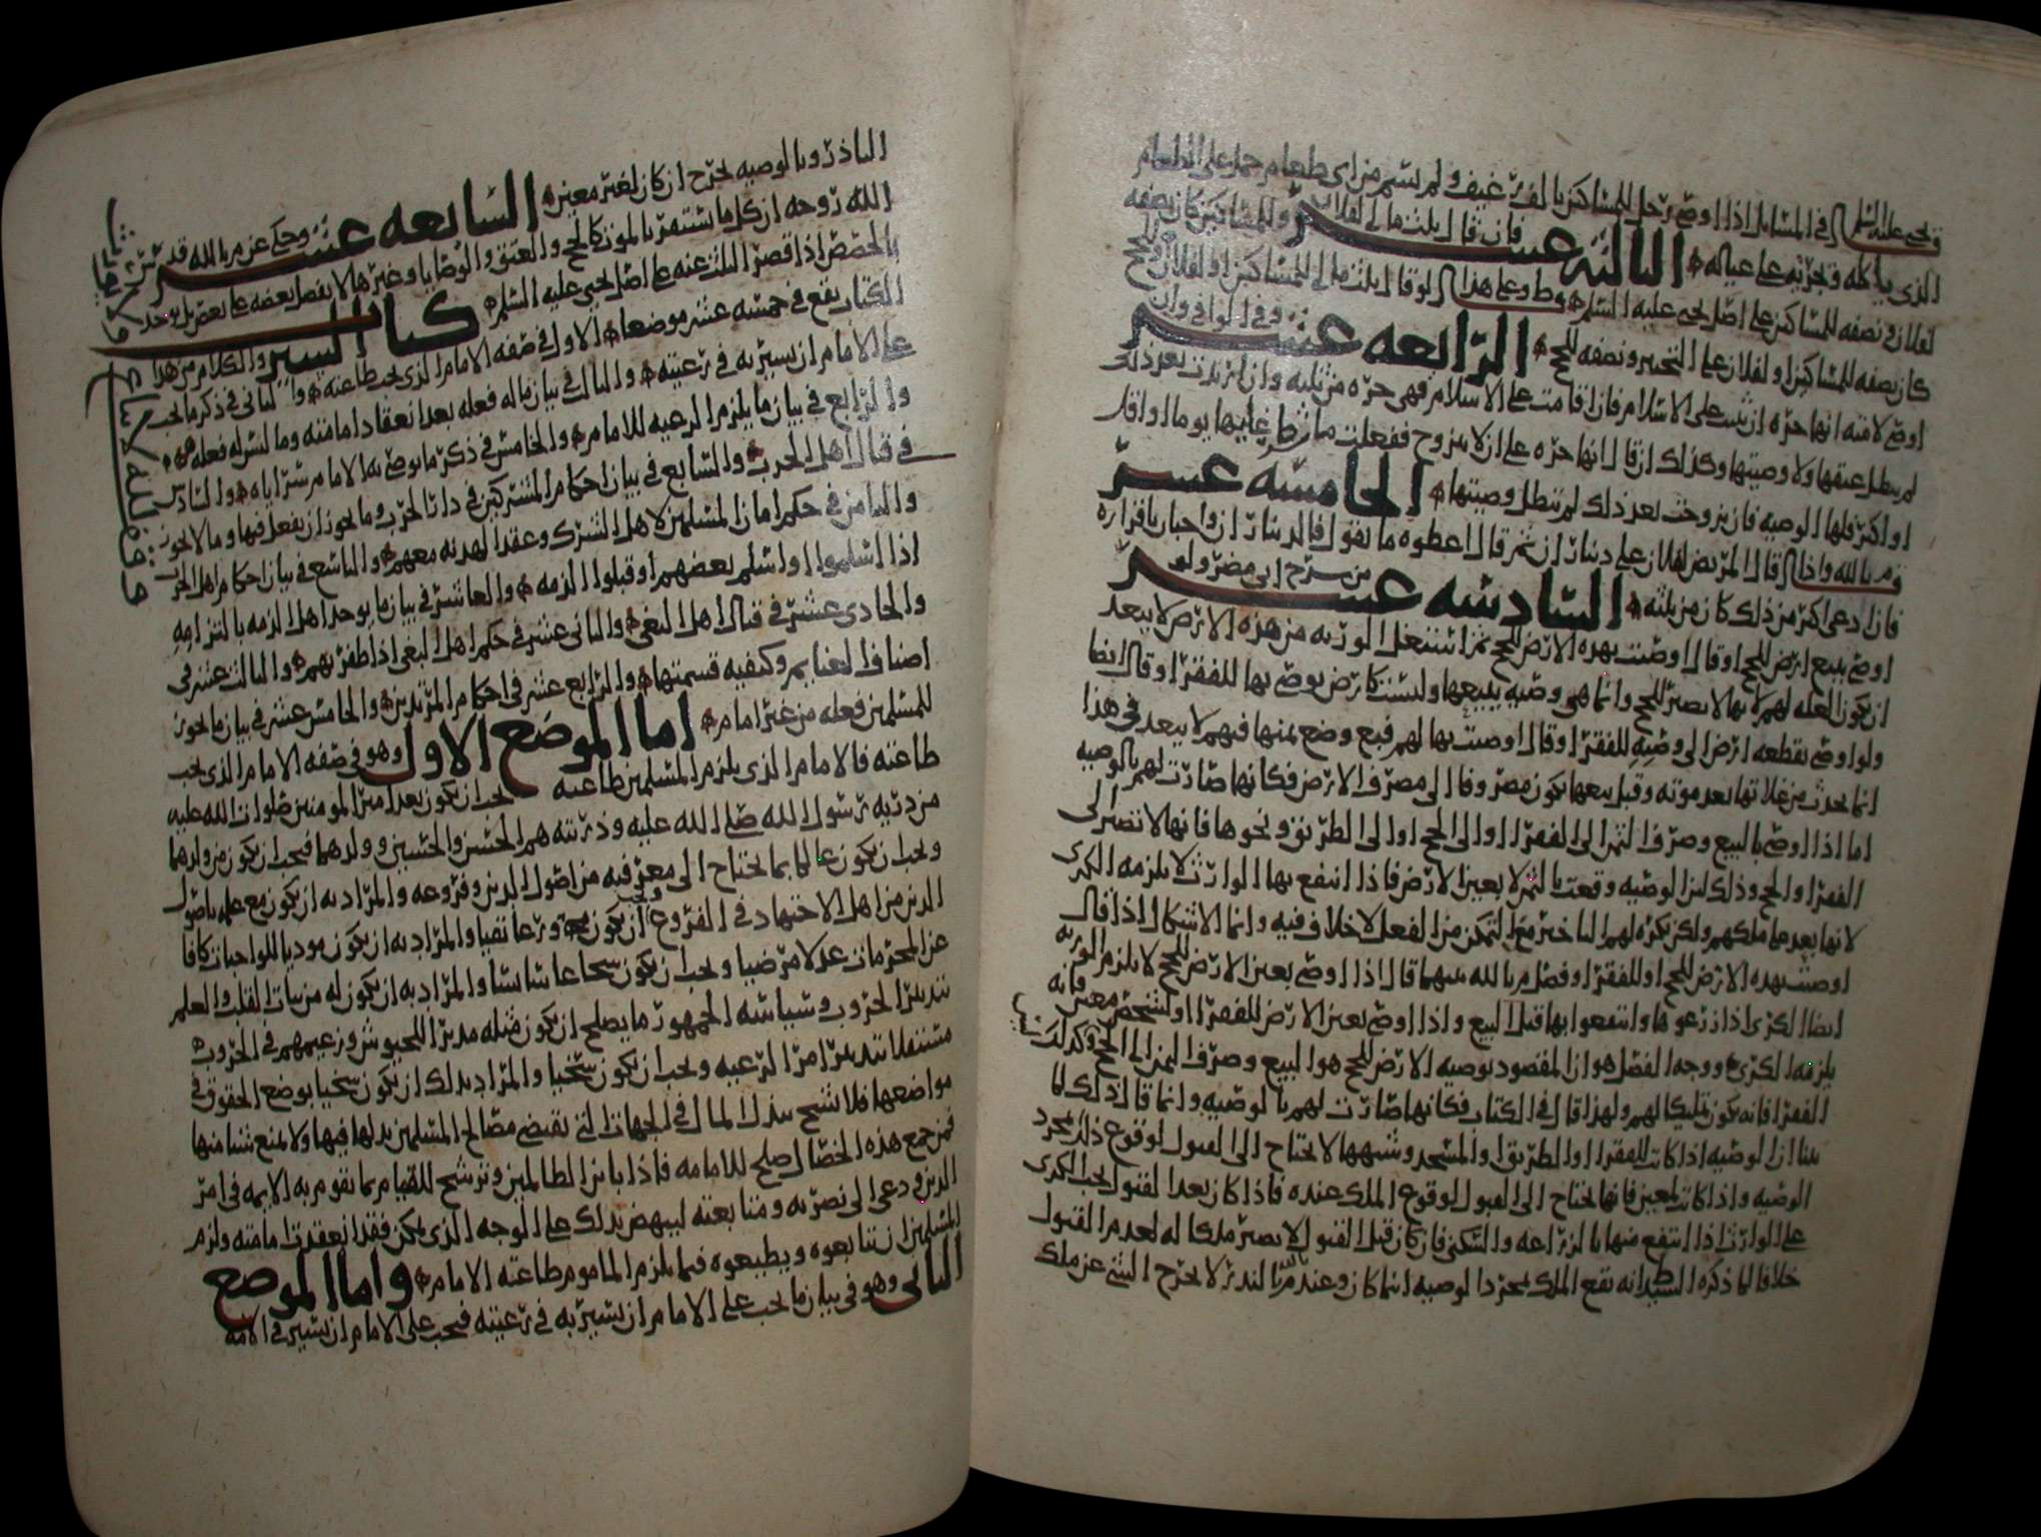 في المسائل اذا اوصى رجل للمساكين بالف رغيف ولم يسم من اي طعام حمل على الطعام
الذي ياكله ويجريه على عياله الثالثه عشر فان قال بثلث مالي لفلان وللمساكين كان نصفه
لفلان ونصفه للمساكين على اصل يحيى عليه السلم وط وعلى هذا لو قال بثلث مالي للمساكين او لفلان وللحج
كان نصفه للمساكين او لفلان على التخيير ونصفه للحج الرابعه عشر وفي الوافي وان
اوصى لامته انها حره ان ثبتت على الاسلام فان اقامت على الاسلام فهي حره من ثلثه وان ارتدت بعد ذلك
لم يبطل عتقها ولا وصيتها وكذلك ان قال انها حره على ان لا تتزوج ففعلت ما شرط عليها يوما او اقل
او اكثر فلها الوصيه فان تزوجت بعد ذلك لم تبطل وصيتها الخامسه عشر
قال المريض لفلان علي دينار ثم قال اعطوه ما يقول فالدينار
فان ادعى اكثر من ذلك كان من ثلثه السادسه عشر من شرح ابي مضر ولو
اوصى ببيع ارض للحج او قال اوصيت بهذه الارض للحج ثم استغل الورثه من هذه الارض لا يبعد
ان يكون الغله لهم لانها لا تصير للحج وانما هي وصيه ببيعها وليست كارض يوصى بها للفقرا وقال ايضا
ولو اوصى بقطعه ارض الى وصيه للفقرا وقال اوصيت بها لهم فبيع وضع ثمنها فيهم لا يبعد في هذا
انما يحدث من غلاتها بعد موته وقبل بيعها يكون مصروفا الى مصرف الارض فكانها صارت لهم بالوصيه
اما اذا اوصى بالبيع وصرف الثمن الى الفقرا او الى الحج او الى الطريق ونحوها فانها لا تصير الى
الفقرا والحج وذلك لان الوصيه وقعت بالثمن لا بعين الارض فاذا انتفع بها الوارث لا يلزمه الكرى
لانها بعد على ملكهم ولكن يكره لهم التاخير مع التمكن من الفعل لا خلاف فيه وانما الاشكال اذا قال
اوصيت بهذه الارض للحج او للفقرا وفصل م بالله بينهما قال اذا اوصى بعين الارض للحج لا يلزم الورثه
ايضا الكرى اذا زرعوها وانتفعوا بها قبل البيع واذا اوصى بعين الارض للفقرا او لشخص معين فانه
يلزمه الكرى ووجه الفصل هو ان المقصود بوصيه الارض للحج هو البيع وصرف الثمن الى الحج وكذلك
الفقرا فانه يكون تمليكا لهم ولهذا قال في الكتاب فكانها صارت لهم بالوصيه وانما قال ذلك لما
بينا ان الوصيه اذا كانت للفقرا او الطريق والمسجد وشبهها لا يحتاج الى القبول لوقوع ذلك بمجرد
الوصيه واذا كانت لمعين فانها يحتاج الى القبول لوقوع الملك عنده فاذا كان بعد القبول يجب الكرى
على الوارث اذا انتفع منها بالزراعه والسكنى فان كان قبل القبول لا يصير ملكا له لعدم القبول
خلافا لما ذكره السيد انه يقع الملك بمجرد الوصيه انما كان وعند م بالله لا يخرج الشي عن ملك
الناذر وبالوصيه يخرج ان كان لغير معين السابعه عشر وحكي عن م بالله قدس
الله روحه ان كل ما يستمر بالموت كالحج والعتق والوصايا وغيرها لا يفضل بعضه على بعض بل يوخذ
بالحصص اذا قصر الثلث عنه على اصل يحيى عليه السلم كتاب السير والكلام من هذا
الكتاب يقع في خمسه عشر موضعا الاول في صفه الامام الذي يجب طاعته والثاني في ذكر ما يجب
على الامام ان يسير به في رعيته والثالث في بيان ما له فعله بعد انعقاد امامته وما ليس له فعله
والرابع في بيان ما يلزم الرعيه للامام والخامس في ذكر ما يوصي به الامام سراياه والسادس
في قتال اهل الحرب والسابع في بيان احكام المشركين في دار الحرب وما يجوز ان يفعل فيها وما لا يجوز
والثامن في حكم امان المسلمين لاهل الشرك وعقد الهدنه معهم والتاسع في بيان احكام اهل الحرب
اذا اسلموا او اسلم بعضهم او قبلوا الذمه والعاشر في بيان ما يوخذ اهل الذمه بالتزامه
والحادي عشر في قتال اهل البغي والثاني عشر في حكم اهل البغي اذا ظفر بهم والثالث عشر في
اصناف الغنايم وكيفيه قسمتها والرابع عشر في احكام المرتدين والخامس عشر في بيان ما يجوز
للمسلمين فعله من غير امام اما الموضع الاول وهو في صفه الامام الذي يجب
طاعته فالامام الذي يلزم المسلمين طاعته يجب ان يكون بعد امير المومنين صلوات الله عليه
من ذريه رسول الله صلى الله عليه وذريته هم الحسن والحسين وولدهما فيجب ان يكون من ولدهما
ويجب ان يكون عالما بما يحتاج الى معرفته من اصول الدين وفروعه والمراد به ان يكون مع علمه باصول
الدين من اهل الاجتهاد في الفروع ويجب ان يكون ورعا تقيا والمراد به ان يكون موديا للواجبات كافا
عن المحرمات عدلا مرضيا ويجب ان يكون شجاعا سايسا والمراد به ان يكون له من ثبات القلب والعلم
بتدبير الحروب وسياسه الجمهور ما يصلح ان يكون مثله مدبرا للجيوش وزعيمهم في الحروب
مستقلا بتدبير امر الرعيه ويجب ان يكون سخيا والمراد بذلك ان يكون سخيا بوضع الحقوق في
مواضعها فلا يشح ببذل المال في الجهات التي يقتضي مصالح المسلمين بذلها فيها ولا يمنع شيئا منها
فمن جمع هذه الخصال صلح للامامه فاذا باين الظالمين وترشح للقيام بما يقوم به الايمه في امر
الدين ودعى الى نصرته ومتابعته لينهض بذلك على الوجه الذي يمكن فقد انعقدت امامته ولزم
المسلمين ان يتابعوه ويطيعوه فيما يلزم الماموم طاعته الامام واما الموضع
الثاني وهو في بيان ما يجب على الامام ان يسير به في رعيته فيجب على الامام ان يسير في الامه